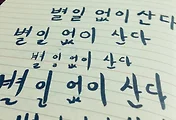 별일 없이 산다
별일 없이 산다
별일 없이 산다
별일 없이 산다